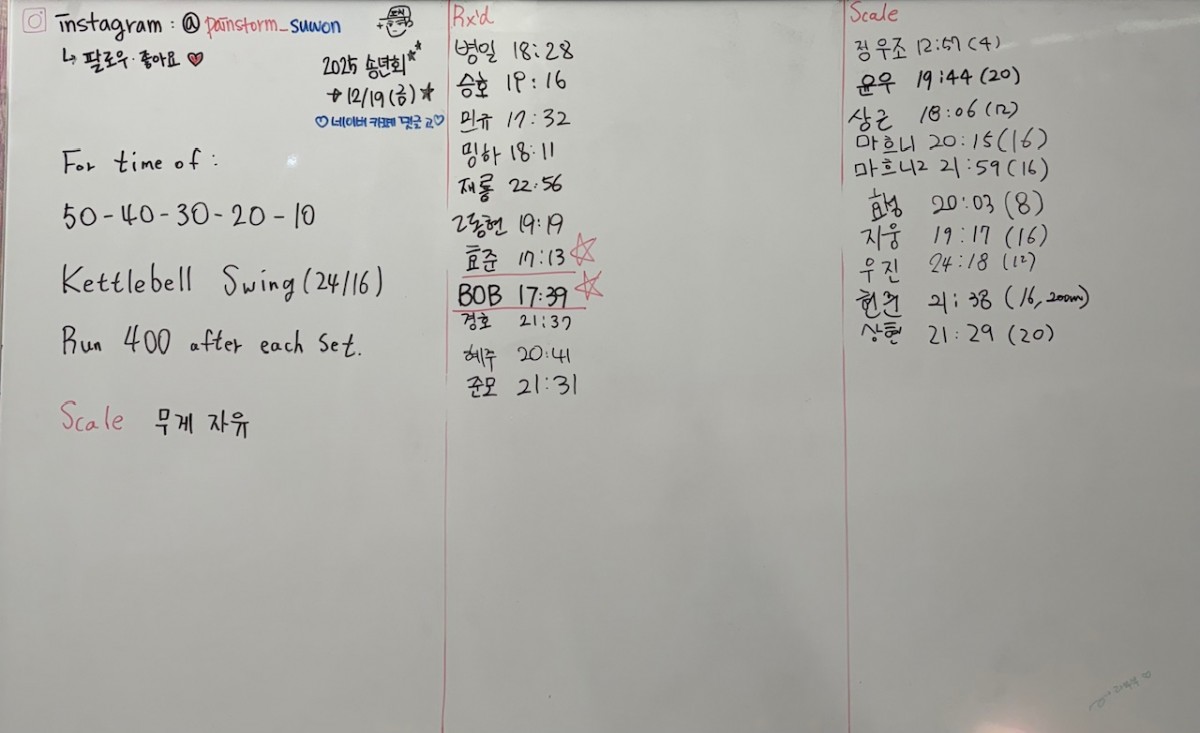 instagram : @painstorm_suwon
↳ 팔로우·좋아요 ♥
2025 송년회
12/19(금)
♡네이버 카페 댓글 고♡
For time of :
50-40-30-20-10
Kettlebell Swing(24/16)
Run 400 after each set.
Scale 무게 자유
Rx'd
병일 18:28
승호 19:16
민규 17:32
밍하 18:11
재룡 22:56
동현 19:19
효준 17:13 ☆
BOB 17:39 ☆
경호 21:37
혜주 20:41
준모 21:31
Scale
정우조 12:57(4)
윤우 19:44(20)
상근 18:06(12)
마흐니 20:15(16)
마흐니2 21:59(16)
효성 20:03(8)
지웅 19:17(16)
우진 24:18(12)
21:38(16,200m)
상현 21:29(20)